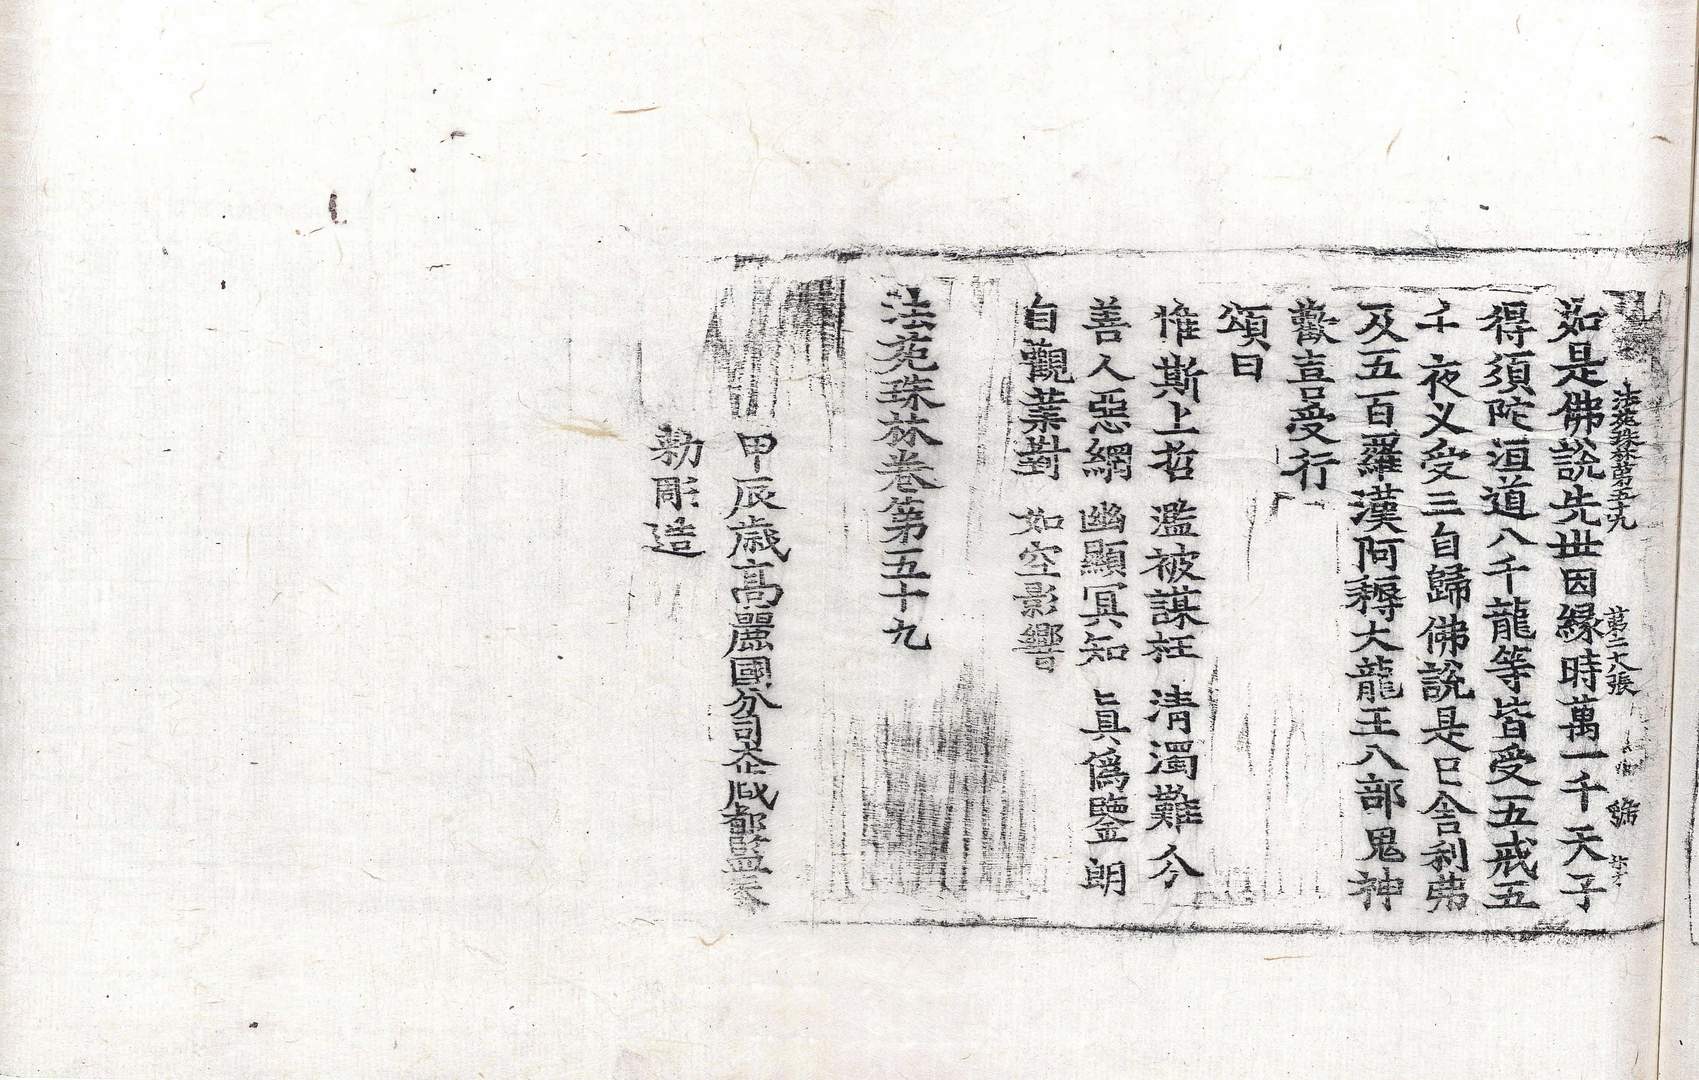 法苑珠林第五十九 第二八張 號
如是佛說先世因緣時萬一千天子
得須陀洹道八千龍等皆受五戒五
千夜叉受三自歸佛說是已舍利弗
及五百羅漢阿耨大龍王八部鬼神
歡喜受行
頌曰
惟斯上哲 濫被謀枉 清濁難分
善人惡網 幽顯冥知 真偽鑒朗
自觀業對 如空影響
法苑珠林卷第五十九
甲辰歲高麗國分司大藏都監奉
勅彫造